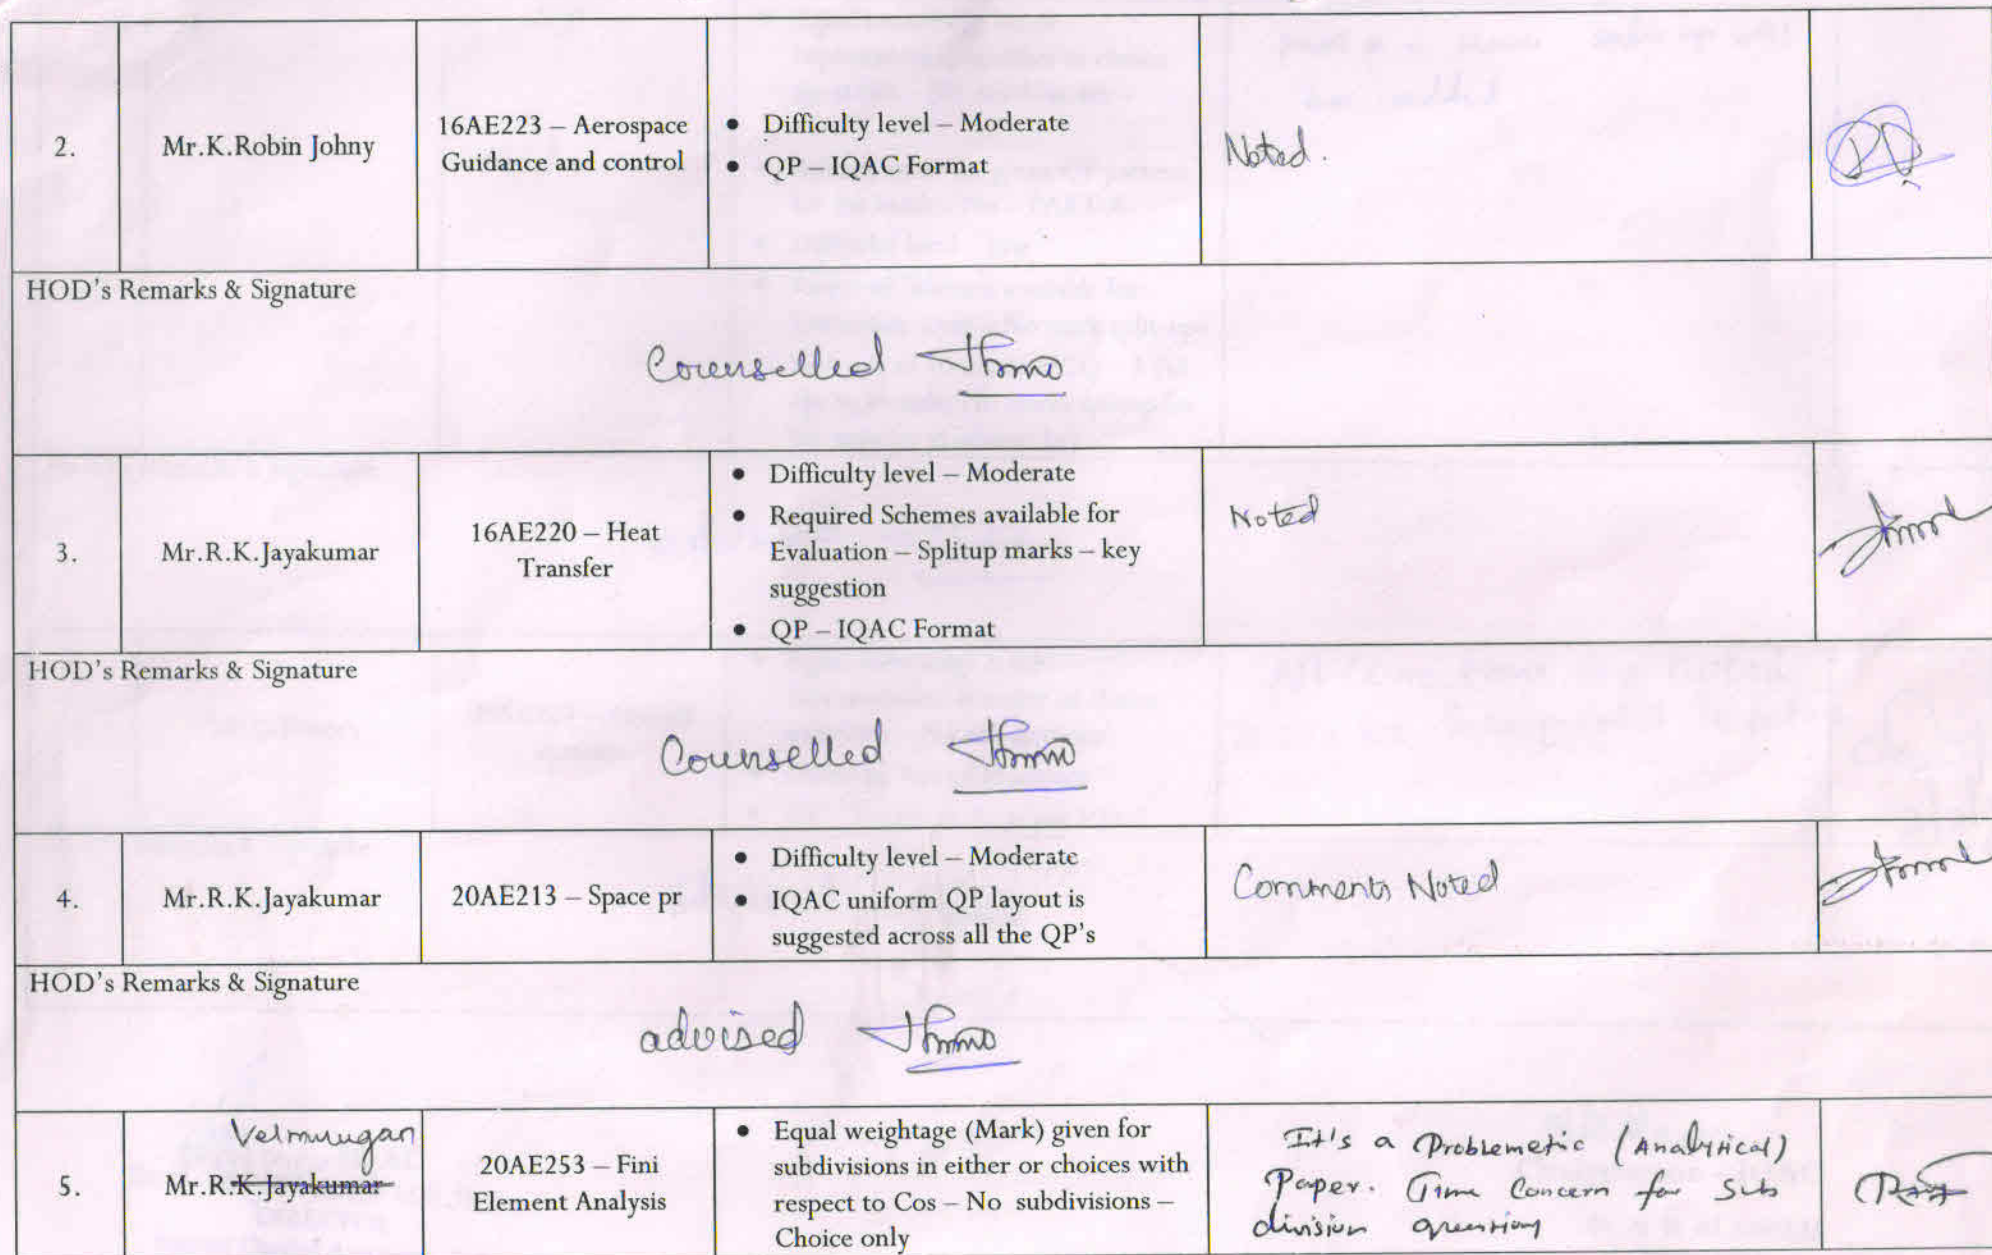 2.
Mr.K.Robin Johny
16AE223 – Aerospace
Guidance and control
• Difficulty level – Moderate
• QP – IQAC Format
Noted.
HOD's Remarks & Signature
Counselled
3.
Mr.R.K.Jayakumar
16AE220 – Heat
Transfer
• Difficulty level – Moderate
• Required Schemes available for
Evaluation – Splitup marks – key
suggestion
• QP – IQAC Format
Noted
HOD's Remarks & Signature
Counselled
4.
Mr.R.K.Jayakumar
20AE213 – Space pr
• Difficulty level – Moderate
• IQAC uniform QP layout is
suggested across all the QP's
Comments Noted
HOD's Remarks & Signature
advised
5.
Velmurugan
Mr.R.K.Jayakumar
20AE253 – Fini
Element Analysis
• Equal weightage (Mark) given for
subdivisions in either or choices with
respect to Cos – No subdivisions –
Choice only
It's a Problemetic (Analytical)
Paper. Time Concern for Sub
division questions